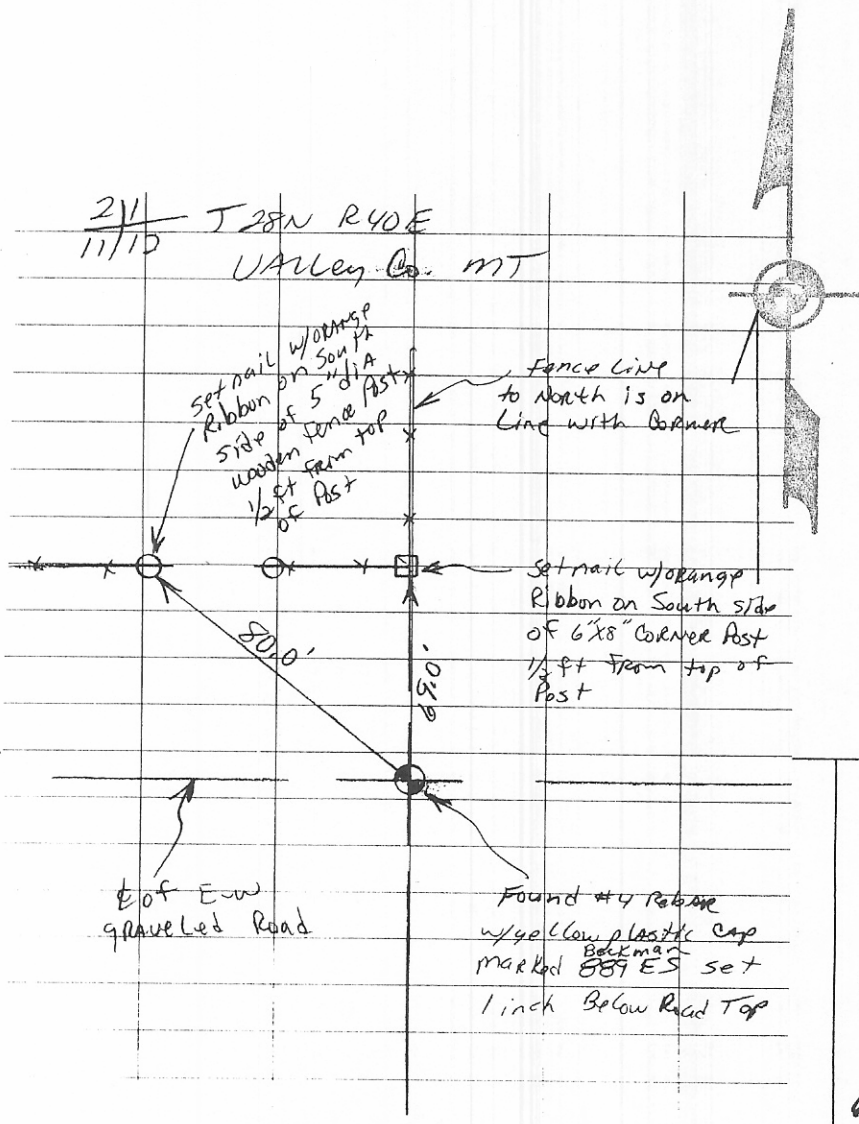 2|1
11/12 T 28N R40E
VALLey Co. MT
Set nail w/ORANGE
Ribbon on South
side of 5" diA
wooden fence Post
1/2 ft from top
of Post
Fence Line
to North is on
Line with Corner
Set nail w/orange
Ribbon on South side
of 6"x8" CORNER Post
1/2 ft From top of
Post
80.0'
℄ of E-W
gRAVeLed Road
Found #4 Rebar
w/yellow plastic CAP
Beckman
MARKed 889 ES set
1 inch Below Road Top